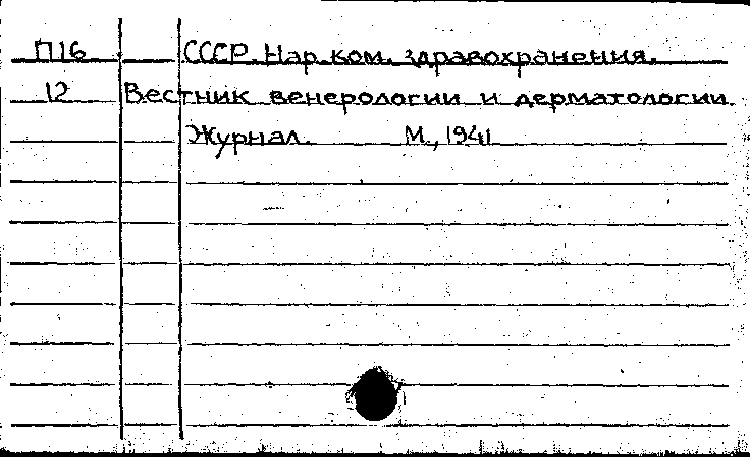 П16 СССР. Нар. ком. здравохранения.
12 Вестник венерологии и дерматологии.
Журнал. М., 1941